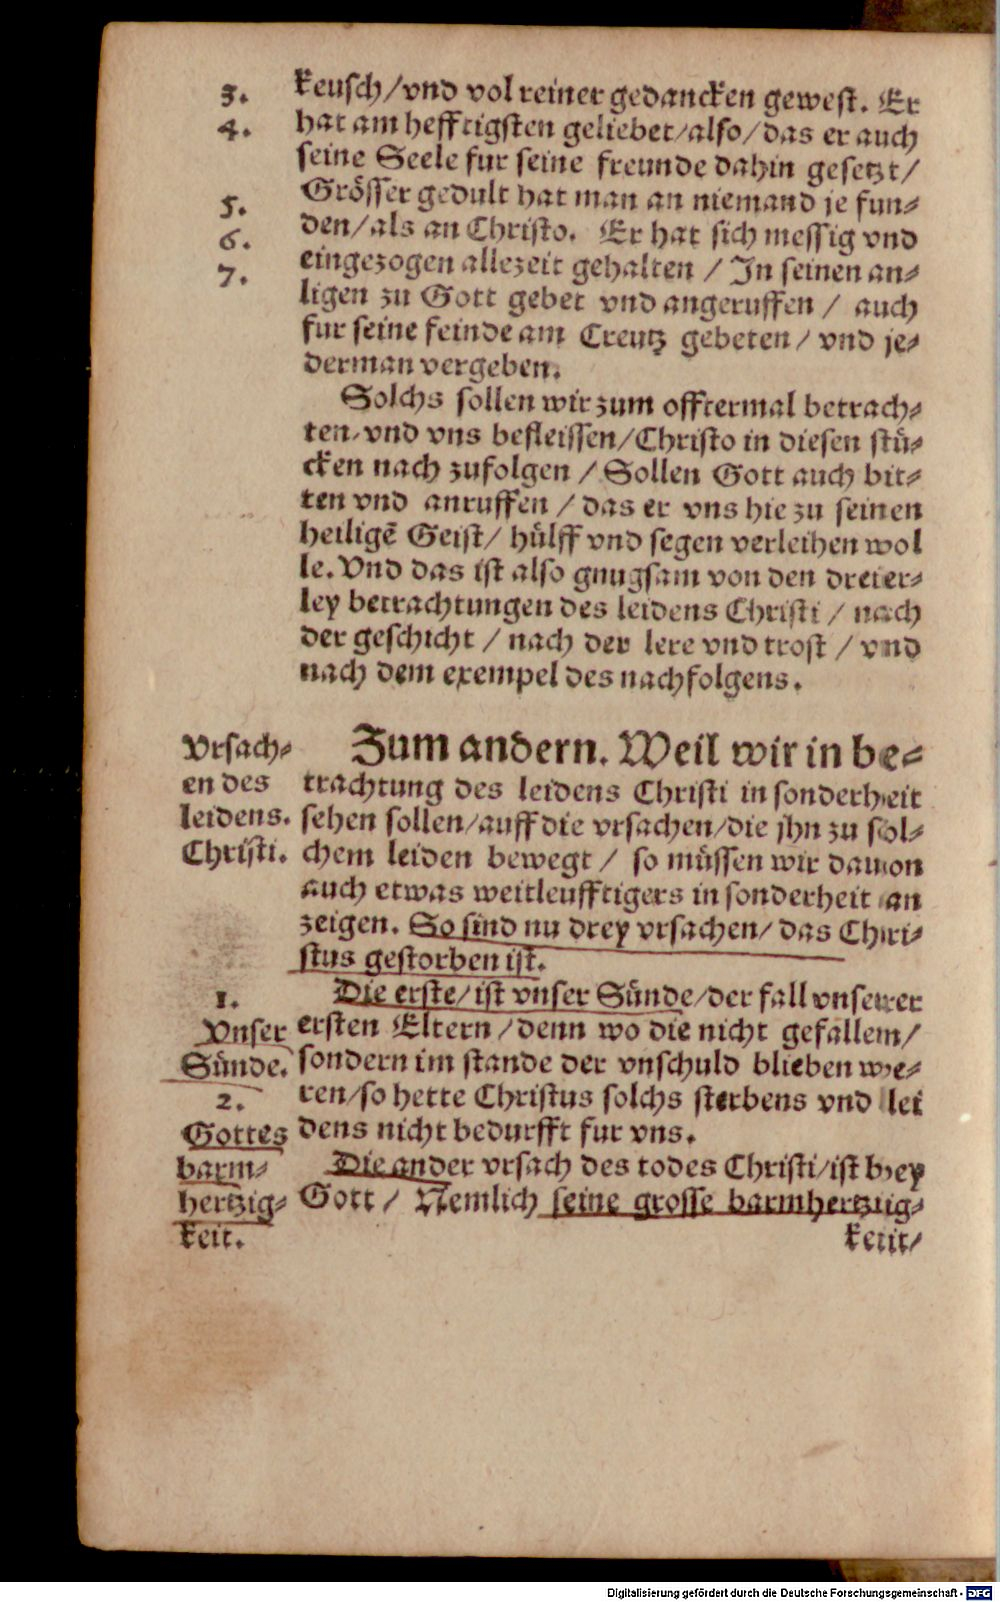 3.
4.
5.
6.
7.
keusch/vnd vol reiner gedancken gewest. Er
hat am hefftigsten geliebet/also/das er auch
seine Seele fur seine freunde dahin gesetzt/
Grösser gedult hat man an niemand je fun-
den/als an Christo. Er hat sich messig vnd
eingezogen allezeit gehalten / In seinen an-
ligen zu Gott gebet vnd angeruffen / auch
fur seine feinde am Creutz gebeten / vnd je-
derman vergeben.
Solchs sollen wir zum offtermal betrach-
ten/vnd vns befleissen/Christo in diesen stü-
cken nach zufolgen / Sollen Gott auch bit-
ten vnd anruffen / das er vns hie zu seinen
heiligē Geist/ hülff vnd segen verleihen wol
le. Vnd das ist also gnugsam von den dreier-
ley betrachtungen des leidens Christi / nach
der geschicht / nach der lere vnd trost / vnd
nach dem exempel des nachfolgens.
Vrsach-
en des
leidens.
Christi.
Zum andern. Weil wir in be-
trachtung des leidens Christi in sonderheit
sehen sollen/auff die vrsachen/die jhn zu sol-
chem leiden bewegt / so müssen wir dauon
auch etwas weitleufftigers in sonderheit an
zeigen. So sind nu drey vrsachen/ das Chri-
stus gestorben ist.
1.
Vnser
Sünde.
2.
Gottes
barm-
hertzig-
keit.
Die erste/ist vnser Sünde/der fall vnserer
ersten Eltern /denn wo die nicht gefallem/
sondern im stande der vnschuld blieben we-
ren/so hette Christus solchs sterbens vnd lei
dens nicht bedurfft fur vns.
Die ander vrsach des todes Christi/ist bey
Gott / Nemlich seine grosse barmhertzig-
keit/
Digitalisierung gefördert durch die Deutsche Forschungsgemeinschaft - DFG